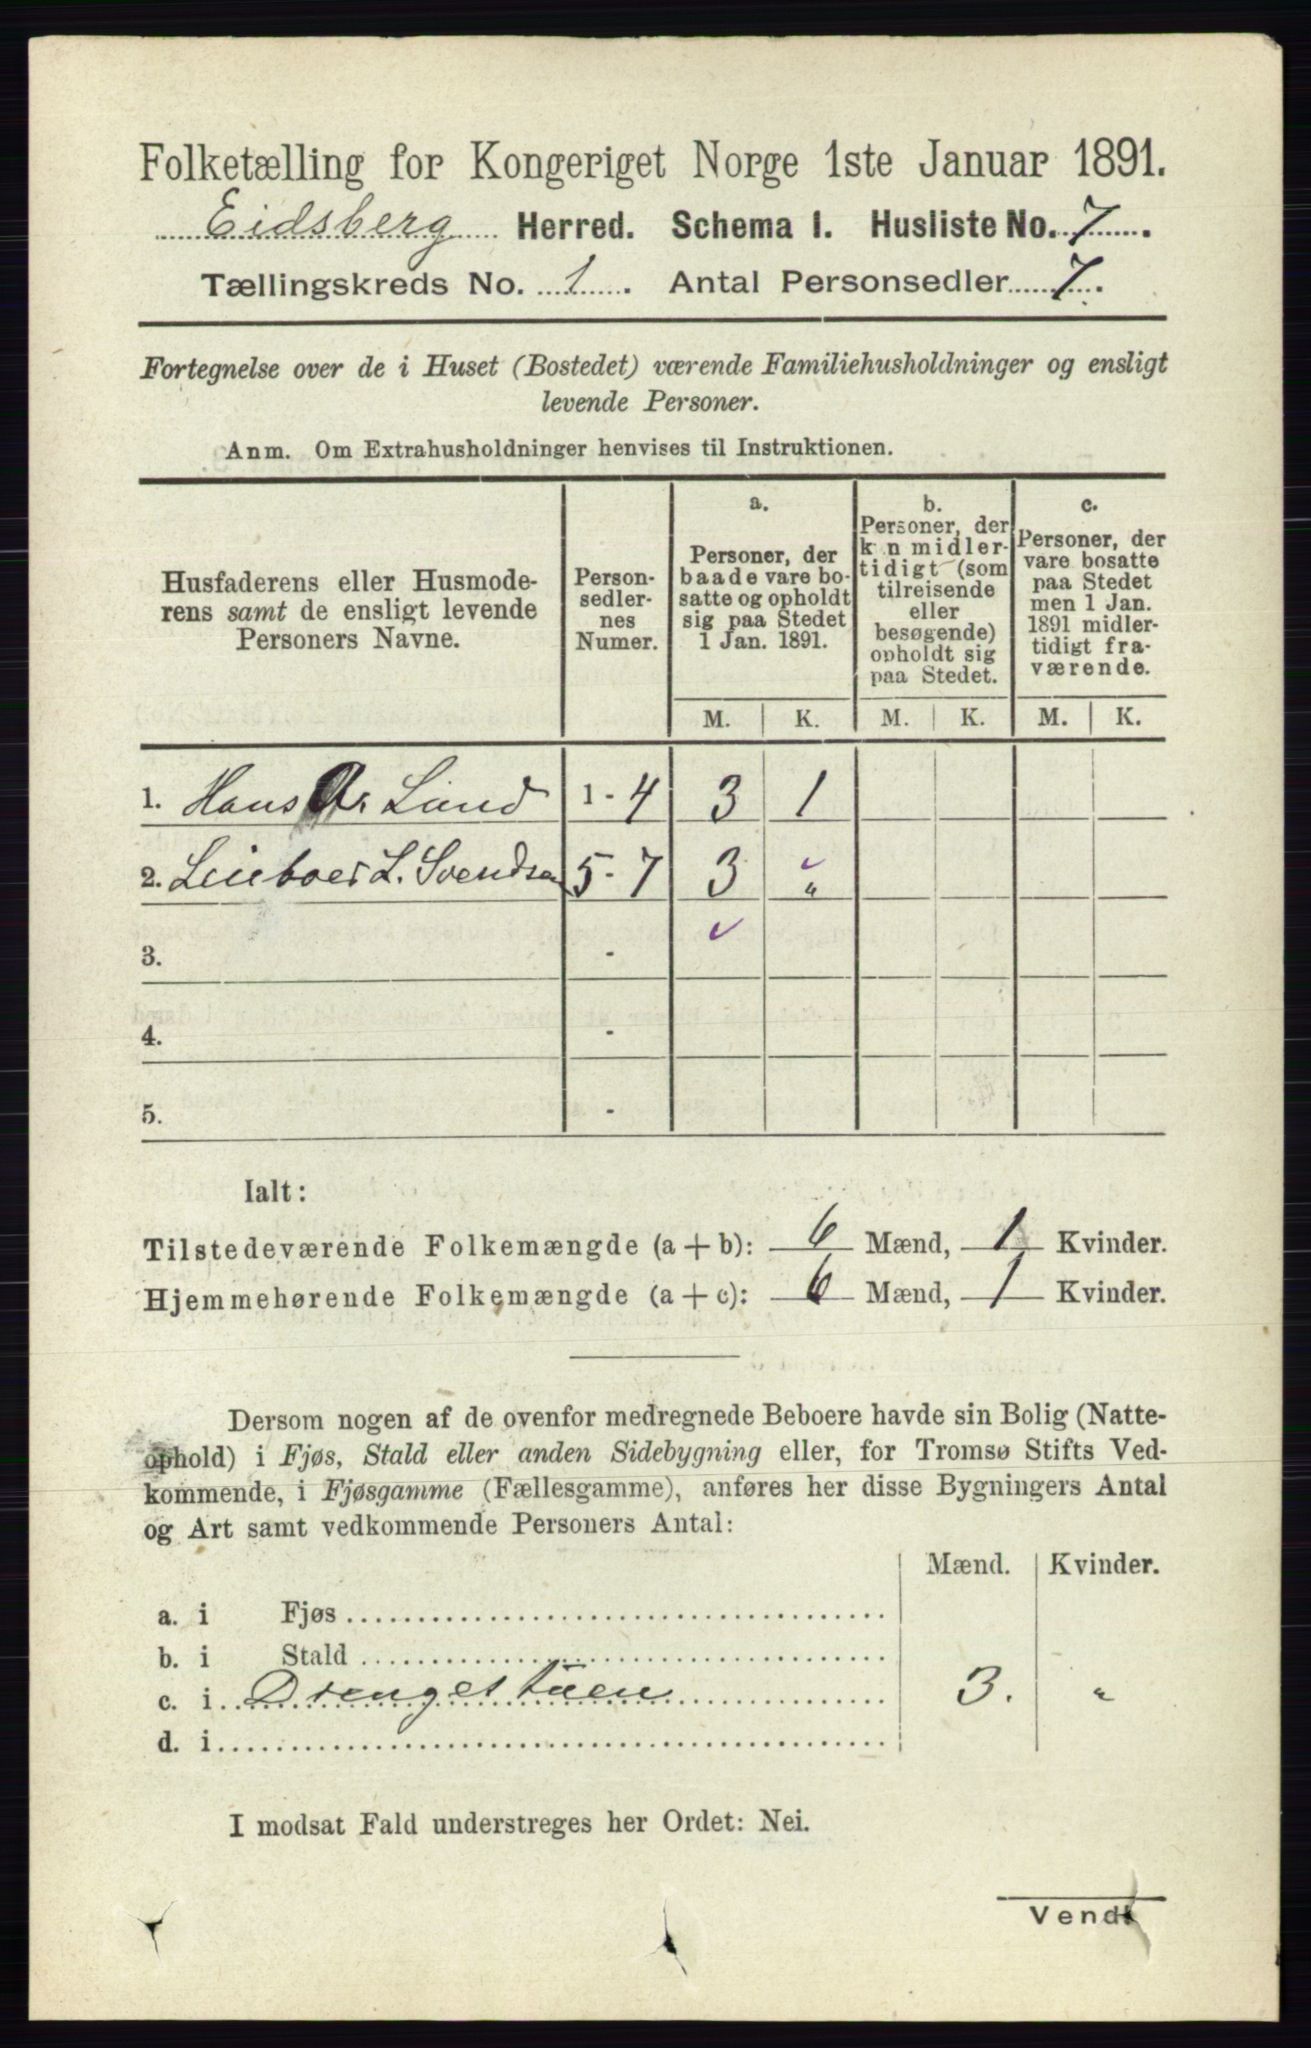 Folketælling for Kongeriget Norge 1ste Januar 1891.
Eidsberg Herred. Schema I. Husliste No. 7.
Tællingskreds No. 1. Antal Personsedler 7.
Fortegnelse over de i Huset (Bostedet) værende Familiehusholdninger og ensligt
levende Personer.
Anm. Om Extrahusholdninger henvises til Instruktionen.
Husfaderens eller Husmode-
rens samt de ensligt levende
Personers Navne.
Person-
sedler-
nes
Numer.
a.
Personer, der
baade vare bo-
satte og opholdt
sig paa Stedet
1 Jan. 1891.
b.
Personer, der
k n midler-
tidigt (som
tilreisende
eller
besøgende)
opholdt sig
paa Stedet.
c.
Personer, der
vare bosatte
paa Stedet
men 1 Jan.
1891 midler-
tidigt fra-
værende.
M. K. M. K. M. K.
1. Hans Lund 1 - 4 3 1
2. L. Svendsen 5 - 7 3 "
3. -
4. -
5. -
Ialt:
Tilstedeværende Folkemængde (a + b): 6 Mænd, 1 Kvinder.
Hjemmehørende Folkemængde (a + c): 6 Mænd, 1 Kvinder.
Dersom nogen af de ovenfor medregnede Beboere havde sin Bolig (Natte-
ophold) i Fjøs, Stald eller anden Sidebygning eller, for Tromsø Stifts Ved-
kommende, i Fjøsgamme (Fællesgamme), anføres her disse Bygningers Antal
og Art samt vedkommende Personers Antal:
Mænd. Kvinder.
a. i Fjøs
b. i Stald
c. i Drengestuen 3. "
d. i
I modsat Fald understreges her Ordet: Nei.
Vendt